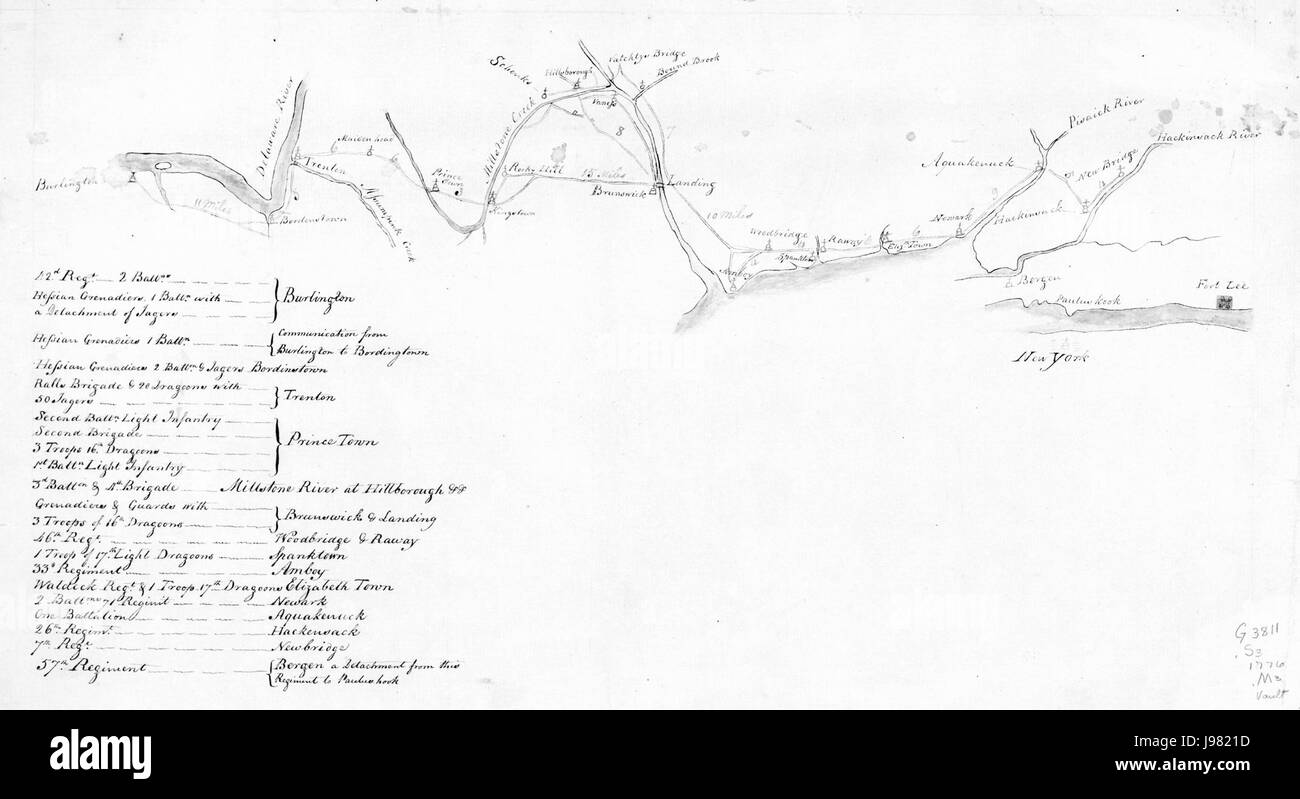 Schenks
Hillsborough
Vatchtys Bridge
Bound Brook
Vaness
Delaware River
Millstone Creek
Pisaick River
Hackinsack River
Maiden head
6
8
7
Aquakenuck
New Bridge
5
Burlington
Trenton
Prince Town
Rocky Hill
13 Miles
Brunswick
Landing
Kingstown
9
Hackinsack
11 Miles
Bordenstown
Creek
10 Miles
Woodbridge
4
Raway
6
6
Newark
Spanktown
Eliz. Town
Amboy
Bergen
Paulus hook
Fort Lee
New York
42d Regt. 2 Battns
Hessian Grenadiers 1 Battn with
a Detachment of Jagers
Burlington
Hessian Grenadiers 1 Battn
Communication from
Burlington to Bordingtown
Hessian Grenadiers 2 Battn & Jagers Bordinstown
Ralls Brigade & 20 Dragoons with
50 Jagers
Trenton
Second Battn Light Infantry
Second Brigade
3 Troops 16th Dragoons
1st Battn Light Infantry
Prince Town
3d Batton & 4th Brigade Millstone River at Hillborough &&
Grenadiers & Guards with
3 Troops of 16th Dragoons
Brunswick & Landing
46th Regt. Woodbridge & Raway
1 Troop of 17th Light Dragoons Spanktown
33d Regiment Amboy
Waldick Regt & 1 Troop 17th Dragoons Elizabeth Town
2 Battns 71st Regimt Newark
One Battalion Aquakenuck
26th Regimt. Hackensack
7th Regt. Newbridge
57th Regiment
Bergen a Detachment from this
Regiment to Paulus hook
G3811
.S3
1776
.M3
Vault
alamy stock photo
J9821D
www.alamy.com